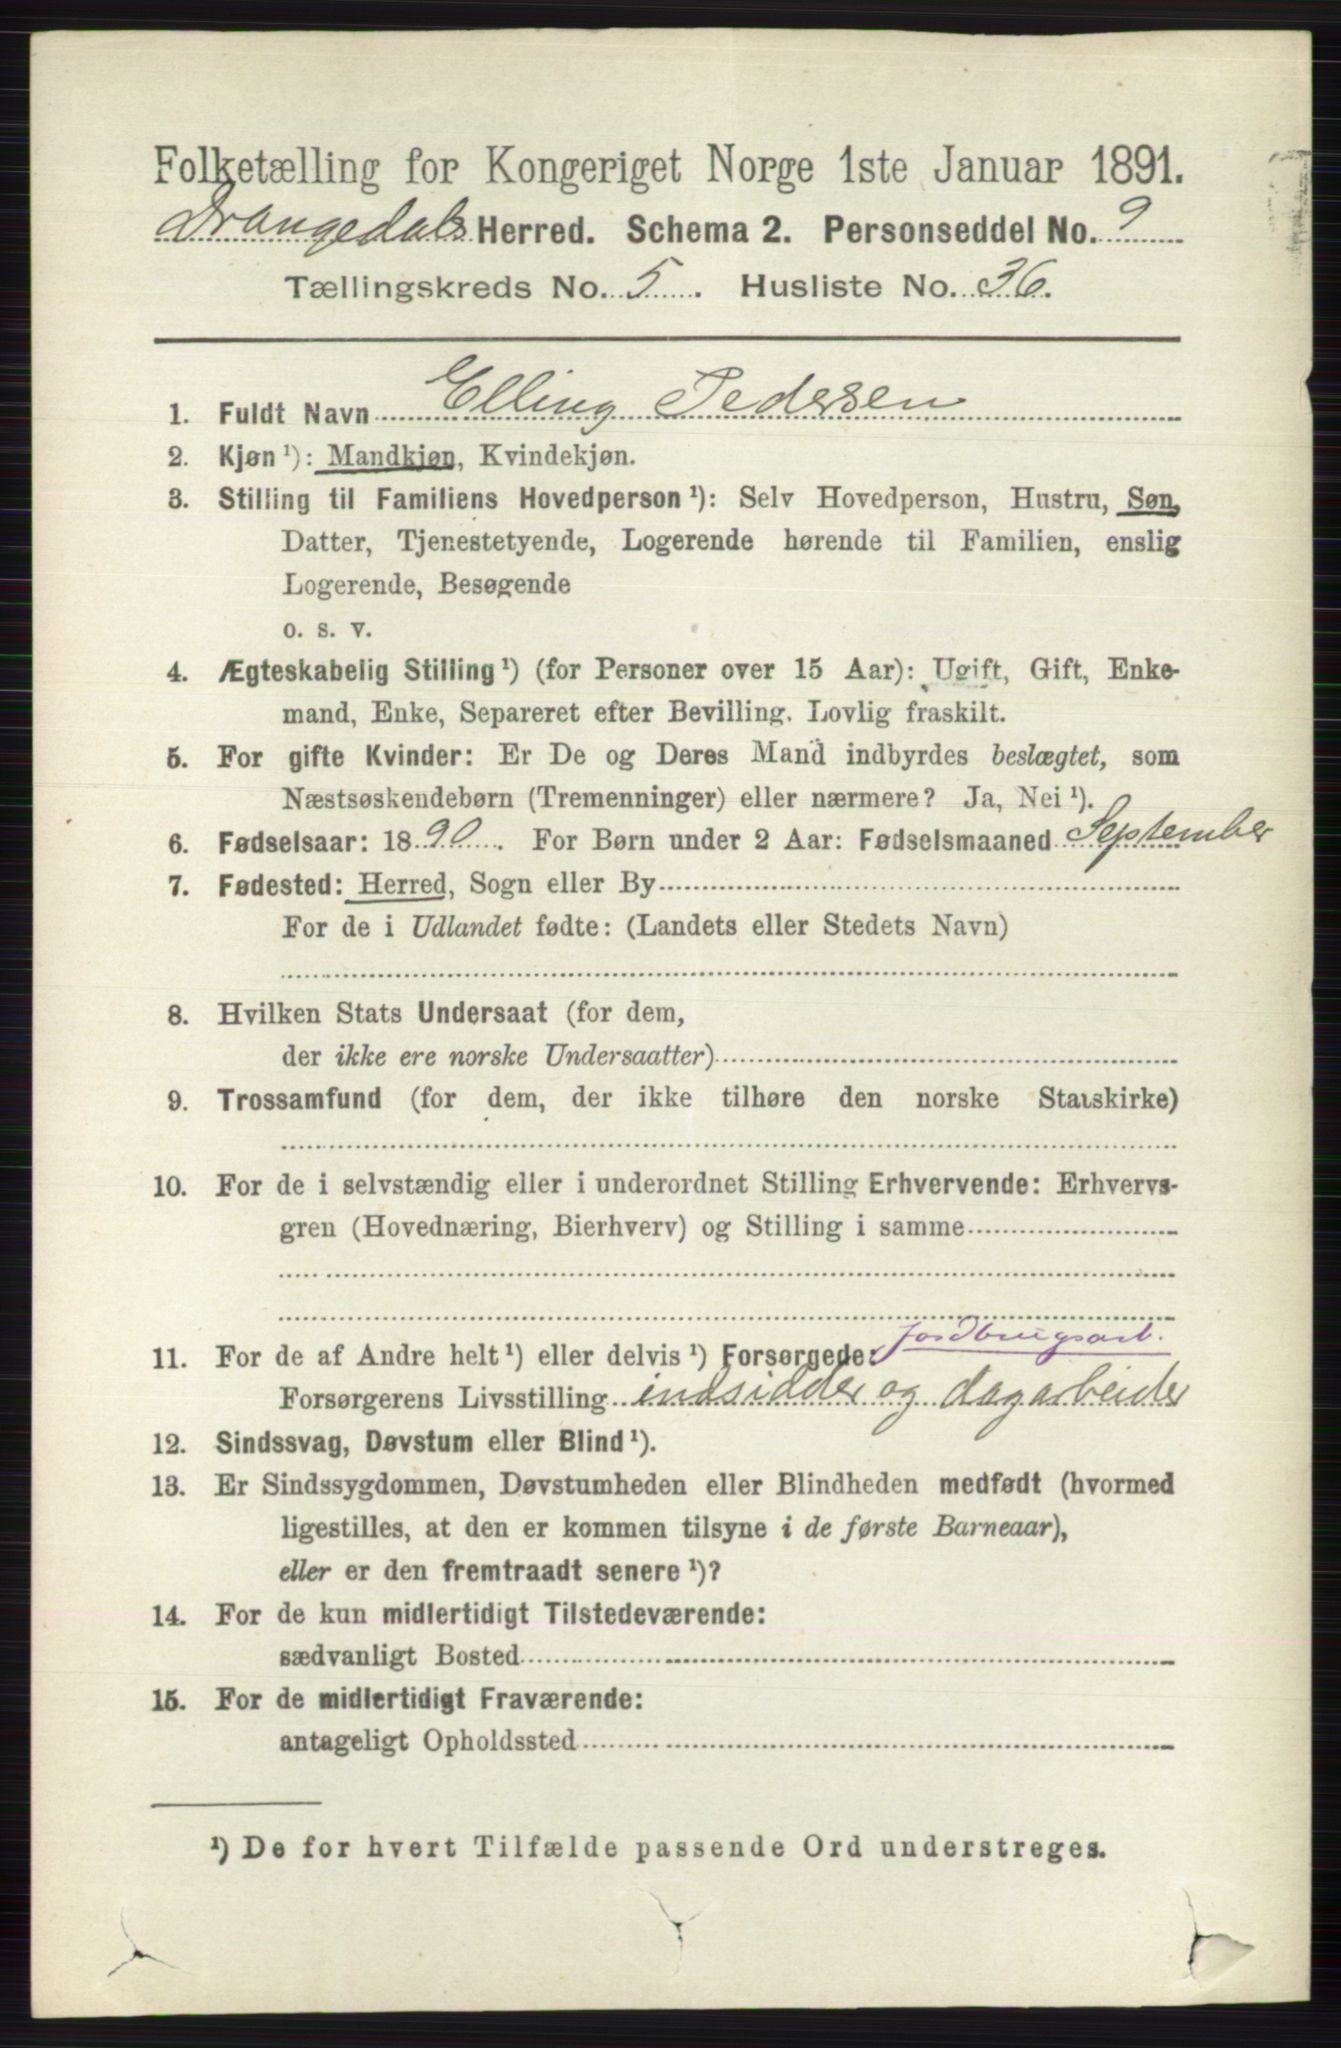 Folketælling for Kongeriget Norge 1ste Januar 1891.
Drangedals Herred. Schema 2. Personseddel No. 9
Tællingskreds No. 5. Husliste No. 36.
1. Fuldt Navn Elling Pedersen
2. Kjøn ¹): Mandkjøn, Kvindekjøn.
3. Stilling til Familiens Hovedperson ¹): Selv Hovedperson, Hustru, Søn,
Datter, Tjenestetyende, Logerende hørende til Familien, enslig
Logerende, Besøgende
o. s. v.
4. Ægteskabelig Stilling ¹) (for Personer over 15 Aar): Ugift, Gift, Enke-
mand, Enke, Separeret efter Bevilling. Lovlig fraskilt.
5. For gifte Kvinder: Er De og Deres Mand indbyrdes beslægtet, som
Næstsøskendebørn (Tremenninger) eller nærmere? Ja, Nei ¹).
6. Fødselsaar: 1890. For Børn under 2 Aar: Fødselsmaaned September
7. Fødested: Herred, Sogn eller By
For de i Udlandet fødte: (Landets eller Stedets Navn)
8. Hvilken Stats Undersaat (for dem,
der ikke ere norske Undersaatter)
9. Trossamfund (for dem, der ikke tilhøre den norske Statskirke)
10. For de i selvstændig eller i underordnet Stilling Erhvervende: Erhvervs-
gren (Hovednæring, Bierhverv) og Stilling i samme
jordbrugsarb.
11. For de af Andre helt ¹) eller delvis ¹) Forsørgede:
Forsørgerens Livsstilling indsidder og dagarbeider
12. Sindssvag, Døvstum eller Blind ¹).
13. Er Sindssygdommen, Døvstumheden eller Blindheden medfødt (hvormed
ligestilles, at den er kommen tilsyne i de første Barneaar),
eller er den fremtraadt senere ¹)?
14. For de kun midlertidigt Tilstedeværende:
sædvanligt Bosted
15. For de midlertidigt Fraværende:
antageligt Opholdssted
¹) De for hvert Tilfælde passende Ord understreges.